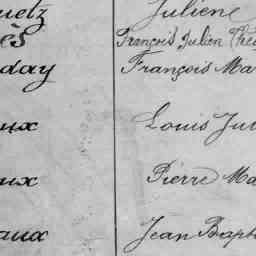 uetz Juliene
ès François Julien Thé
day François Ma
ux Louis Ju
ux Pierre Ma
aux Jean Bapt